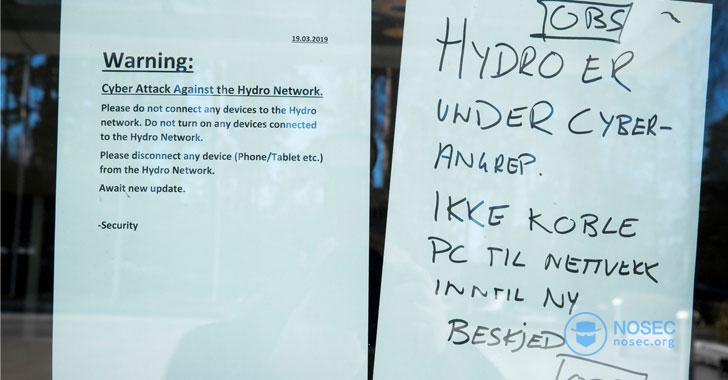 19.03.2019
Warning:
Cyber Attack Against the Hydro Network.
Please do not connect any devices to the Hydro
network. Do not turn on any devices connected
to the Hydro Network.
Please disconnect any device (Phone/Tablet etc.)
from the Hydro Network.
Await new update.
-Security
OBS
HYDRO ER
UNDER CYBER-
ANGREP.
IKKE KOBLE
PC TIL NETTVERK
INNTIL NY
BESKJED
NOSEC
nosec.org